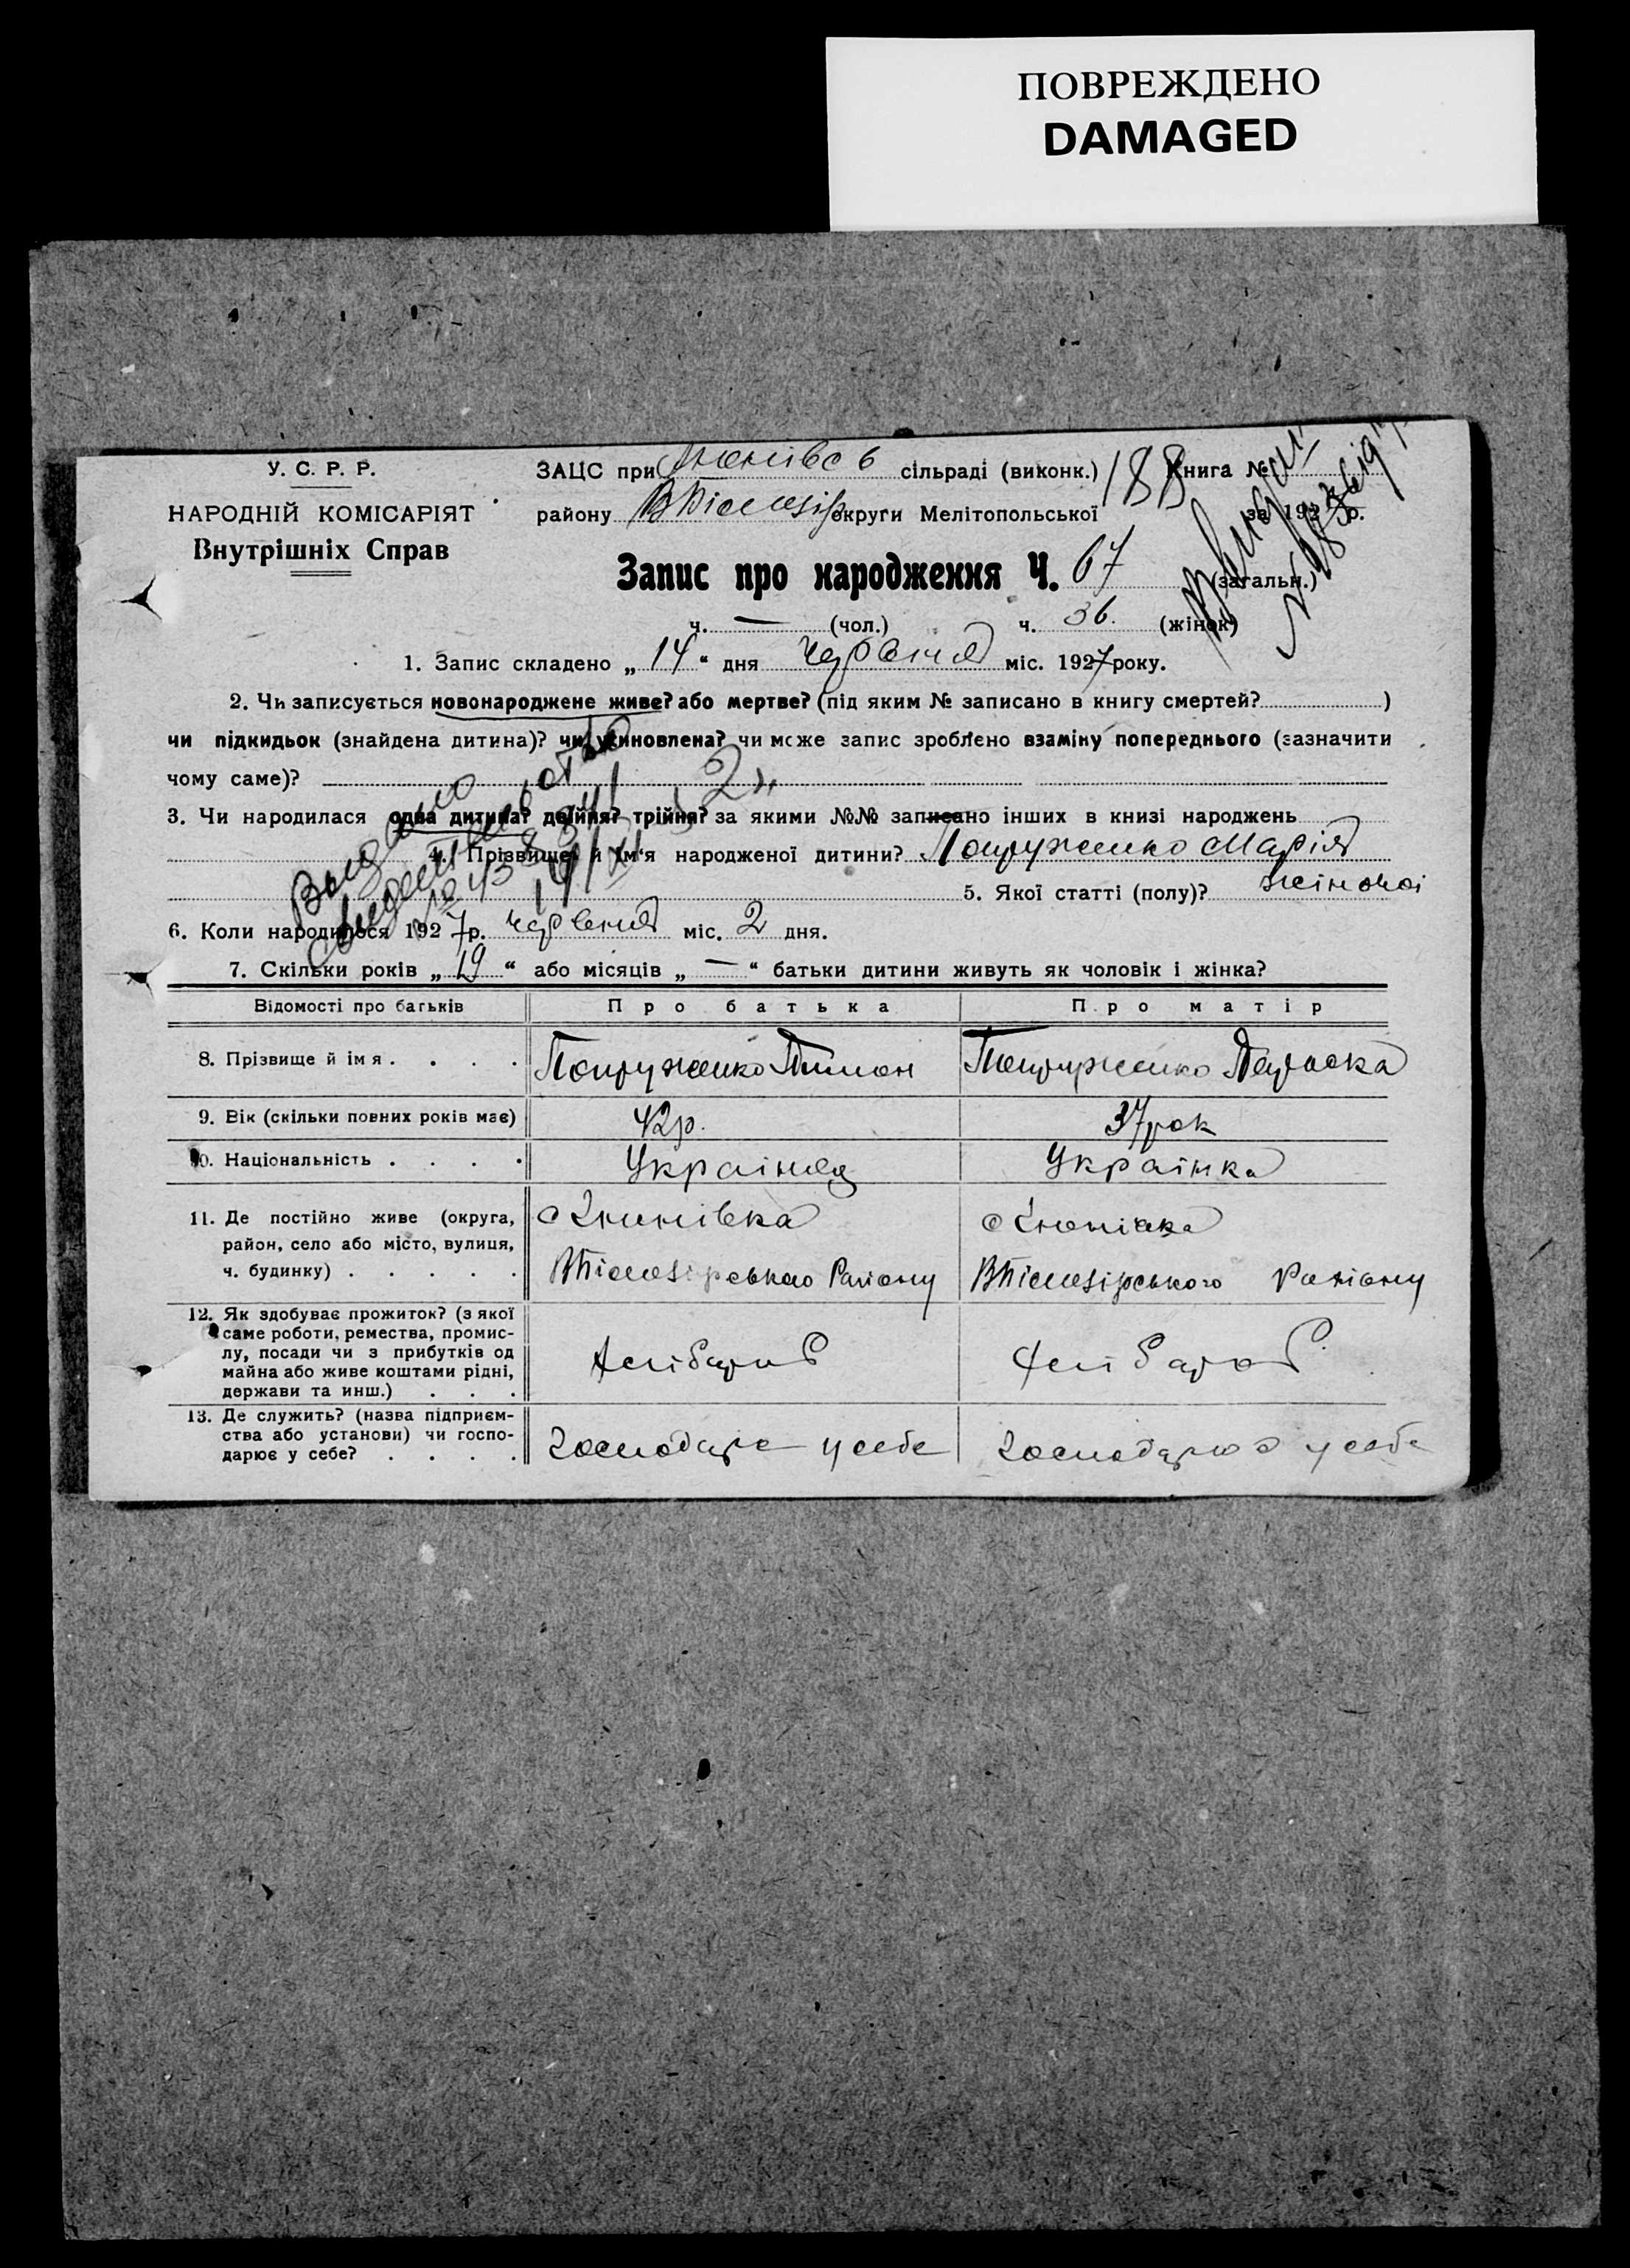 ПОВРЕЖДЕНО
DAMAGED
У. С. Р. Р.
НАРОДНІЙ КОМІСАРІЯТ
Внутрішніх Справ
ЗАЦС при сільраді (виконк.) 188 Книга №
району округи Мелітопольської за 192 р.
Запис про народження Ч. 67 (загальн.)
ч. — (чол.) ч. 36. (жінок)
1. Запис складено „ 14 “ дня червня міс. 1927 року.
2. Чи записується новонароджене живе? або мертве? (під яким № записано в книгу смертей? )
чи підкидьок (знайдена дитина)? чи усиновлена? чи може запис зроблено взаміну попереднього (зазначити
чому саме)?
3. Чи народилася одна дитина? двійня? трійня? за якими №№ записано інших в книзі народжень
4. Прізвище й їм'я народженої дитини? Марія
5. Якої статті (полу)? жіночої
6. Коли народилося 1927 р. червня міс. 2 дня.
7. Скільки років „ 19 “ або місяців „ — “ батьки дитини живуть як чоловік і жінка?
Відомості про батьків Про батька Про матір
8. Прізвище й імя . . . .
9. Вік (скільки повних років має) 42 р. 37 рок
10. Національність . . . . Українец Українка
11. Де постійно живе (округа,
район, село або місто, вулиця,
ч. будинку) . . . . .
12. Як здобуває прожиток? (з якої
саме роботи, ремества, промис-
лу, посади чи з прибутків од
майна або живе коштами рідні,
держави та инш.) . . . Хлібороб Хлібороб
13. Де служить? (назва підприєм-
ства або установи) чи госпо-
дарює у себе? . . . . господарює у себе господарює у себе